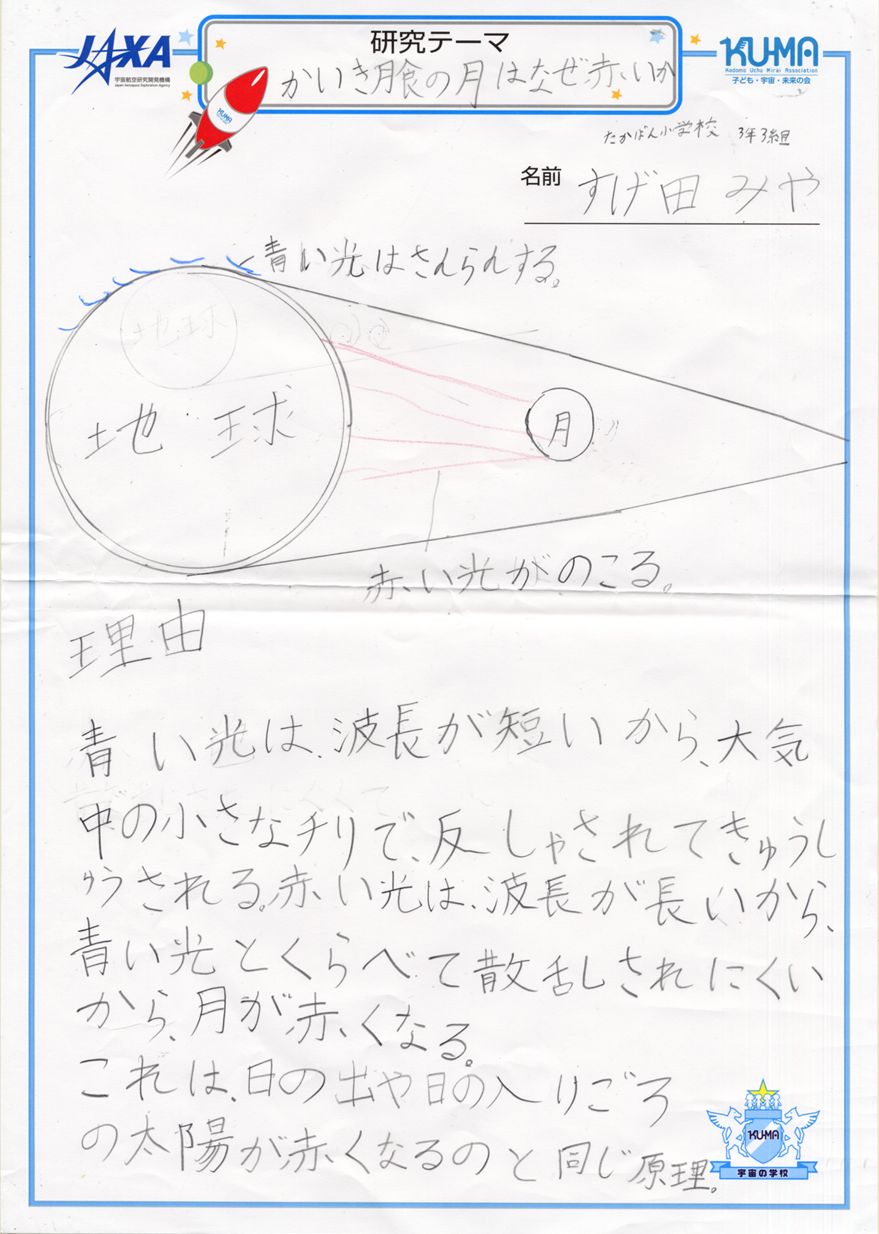 JAXA
宇宙航空研究開発機構
Japan Aerospace Exploration Agency
研究テーマ
かいき月食の月はなぜ赤いか
KU-MA
Kodomo Uchu Mirai Association
子ども・宇宙・未来の会
KU-MA
たかばん小学校 3年3組
名前 すげ田 みや
青い光はさんらんする。
地球
地球
月
赤い光がのこる。
理由
青い光は、波長が短いから、大気
中の小さなチリで、反しゃされてきゅうし
ゅうされる。赤い光は、波長が長いから、
青い光とくらべて散乱しされにくい
から、月が赤くなる。
これは、日の出や日の入りごろ
の太陽が赤くなるのと同じ原理。
KU-MA
宇宙の学校